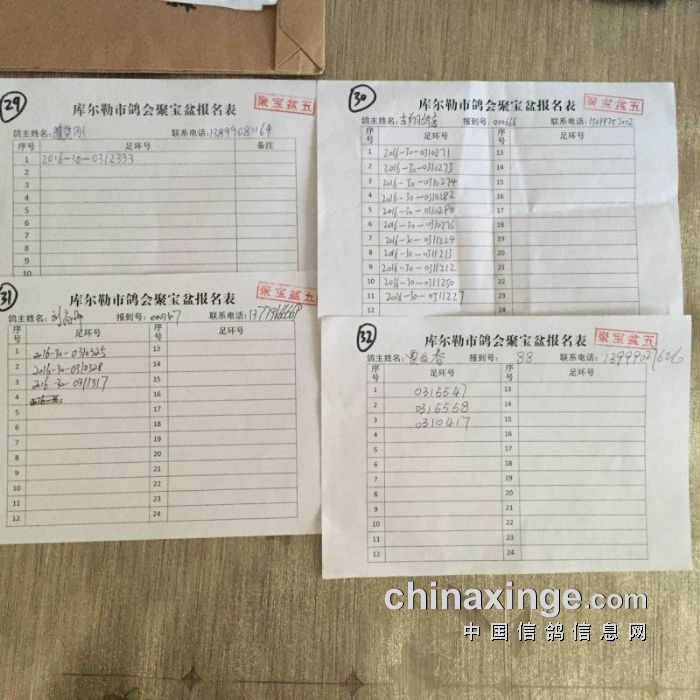 29
库尔勒市鸽会聚宝盆报名表
聚宝盆五
鸽主姓名: 联系电话:13899081164
序号 足环号 备注
1 2016-30-0312333
2
3
4
5
6
7
8
9
10
30
库尔勒市鸽会聚宝盆报名表
聚宝盆五
鸽主姓名: 报到号:000666 联系电话:
序号 足环号 序号 足环号
1 2016-30-0310271 13
2 2016-30-0310273 14
3 2016-30-0310274 15
4 2016-30-0310282 16
5 2016-30-0310290 17
6 2016-30-0310276 18
7 2016-30-0311224 19
8 2016-30-0311213 20
9 2016-30-0311212 21
10 2016-30-0311250 22
11 2016-30-0311227 23
31
库尔勒市鸽会聚宝盆报名表
聚宝盆五
鸽主姓名: 报到号: 联系电话:
序号 足环号 序号 足环号
1 2016-30-0310325 13
2 2016-30-0310328 14
3 2016-30-0311317 15
4 16
5 17
6 18
7 19
8 20
9 21
10 22
11 23
12 24
32
库尔勒市鸽会聚宝盆报名表
聚宝盆五
鸽主姓名: 报到号: 88 联系电话:13999021626
序号 足环号 序号 足环号
1 0315547 13
2 0315558 14
3 0310417 15
4 16
5 17
6 18
7 19
8 20
9 21
10 22
11 23
12 24
chinaxinge.com
中国信鸽信息网